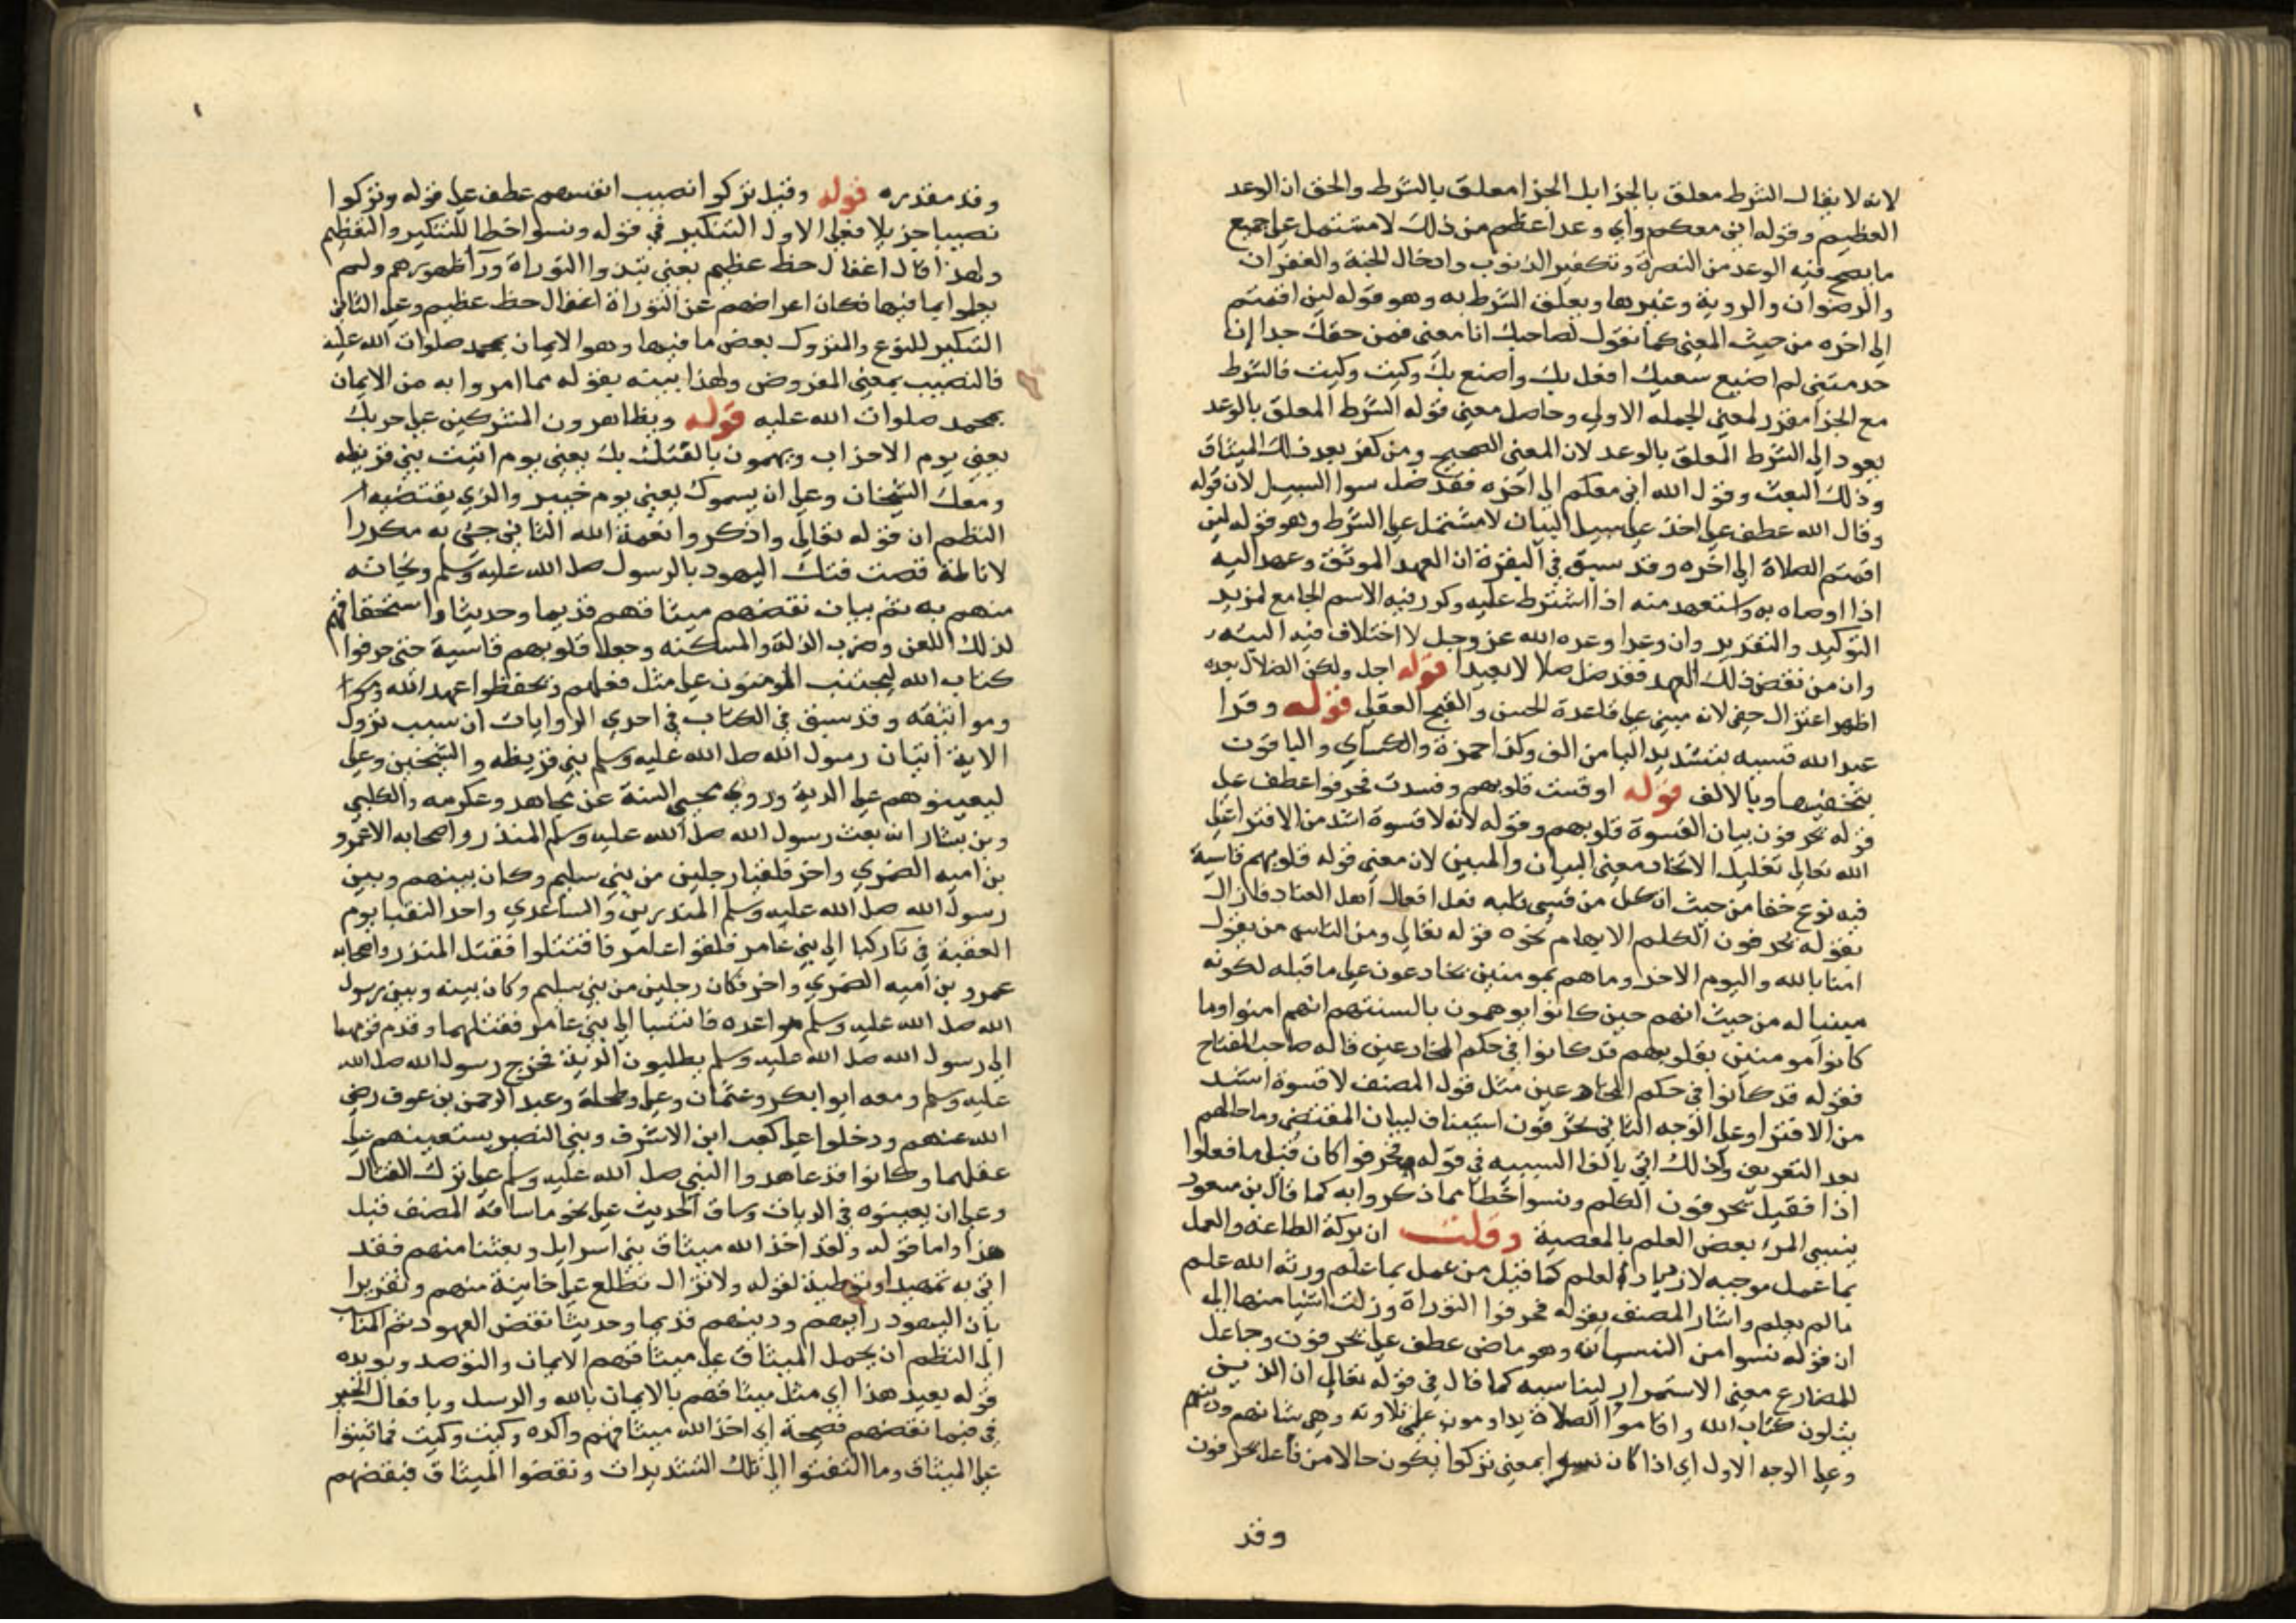 لانه لا يقال الشرط معلق بالجزا بل الجزا معلق بالشرط والحق ان الوعد
العظيم وقوله اني معكم واي وعد اعظم من ذلك لا مشتمل على جميع
ما يصح فيه الوعد من النصرة وتكفير الذنوب وادخال الجنة والغفران
والرضوان والروية وغيرها ويعلق الشرط به وهو قوله لين اقمتم
الى اخره من حيث المعنى كما نقول لصاحبك انا معنى فمن حقك جدا ان
خدمتني لم اضيع سعيك افعل بك واصنع بك وكيت وكيت فالشرط
مع الجزا مقرر لمعنى الجمله الاولى وحاصل معنى قوله الشرط المعلق بالوعد
يعود الى الشرط المعلق بالوعد لان المعنى الصحيح ومن كفر بعد ذلك الميثاق
وذلك البعث وقول الله اني معكم الى اخره فقد ضل سوا السبيل لان قوله
وقال الله عطف على اخذ على سبيل البيان لا مشتمل على الشرط وهو قوله لين
اقمتم الصلاة الى اخره وقد سبق في البقرة ان العهد الموثق وعهد اليه
اذا اوصاه به واستعهد منه اذا اشترط عليه وكرر فيه الاسم الجامع لمزيد
التوكيد والتقدير وان وعدا وعده الله عز وجل لا اختلاف فيه البته
وان من نقض ذلك العهد فقد ضل ضلالا بعيدا قوله اجل ولكن الضلال بعده
اظهر اعتزال خفي لانه مبني على قاعدة الحسن والقبح العقلي قوله وقرا
عبد الله قسيه بتشديد اليا من الف وكذا حمزة والكساي والباقون
بتخفيفها وبالالف قوله او قست قلوبهم وفسدت فحرفوا عطف على
قوله يحرفون بيان لقسوة قلوبهم وقوله لانه لا قسوة اشد من الافترا على
الله تعالى تعليل لاتحاد معنى البيان والمبين لان معنى قوله قلوبهم قاسية
فيه نوع خفا من حيث ان كل من قسى قلبه فعل افعال اهل العناد فازال
بقوله يحرفون الكلم الابهام نحوه قوله تعالى ومن الناس من يقول
امنا بالله واليوم الاخر وما هم بمومنين يخادعون على ما قبله لكونه
مبينا له من حيث انهم حين كانوا يوهمون بالسنتهم انهم امنوا وما
كانوا مومنين بقلوبهم قد كانوا في حكم المخادعين قاله صاحب المفتاح
فقوله قد كانوا في حكم المخادعين مثل قول المصنف لا قسوة اشد
من الافترا وعلى الوجه الثاني يحرفون استيناف لبيان المقتضي وما حالهم
بعد التعريض ولذلك اتى بالفا السببيه في قوله فحرفوا كان قيل ما فعلوا
اذا فقيل يحرفون الكلم ونسوا حظا مما ذكروا به كما قال بن مسعود
ينسى المرء بعض العلم بالمعصية وقلت ان بركة الطاعه والعمل
بما عمل موجبه لازدياد العلم كما قيل من عمل بما علم ورثه الله علم
مالم يعلم واشار المصنف بقوله فحرفوا التوراة وزلت اشيا منها الى
ان قوله نسوا من النسيان وهو ماض عطف على يحرفون وجاعل
المضارع معنى الاستمرار ليناسبه كما قال في قوله تعالى ان الذين
يتلون كتاب الله واقاموا الصلاة يداومون على تلاوته وهي شانهم ودينهم
وعلى الوجه الاول اي اذا كان نسوا بمعنى تركوا يكون حالا من فاعل يحرفون
وقد
وقد مقدره قوله وقيل تركوا نصيب انفسهم عطف على قوله وتركوا
نصيبا جزيلا فعلى الاول التنكير في قوله ونسوا حظا للتكثير والتعظيم
ولهذا قال اغفال حظ عظيم يعني نبذوا التوراة ورا ظهورهم ولم
يعلموا بما فيها فكان اعراضهم عن التوراة اغفال حظ عظيم وعلى الثاني
التنكير للنوع والمتروك بعض ما فيها وهو الايمان بمحمد صلوات الله عليه
فالنصيب بمعنى المفروض ولهذا بينه بقوله مما امروا به من الايمان
بمحمد صلوات الله عليه قوله ويظاهرون المشركين على حربك
يعني يوم الاحزاب ويهمون بالفتك بك يعني يوم اتيت بني قريظه
ومعك الشيخان وعلى ان يسموك يعني يوم خيبر والذي يقتضيه
النظم ان قوله تعالى واذكروا نعمة الله الثاني جئ به مكررا
لاناطة قصت فتك اليهود بالرسول صلى الله عليه وسلم ونجاته
منهم به ثم بيان نقضهم ميثاقهم قديما وحديثا واستحقاقهم
لذلك اللعن وضرب الذلة والمسكنه وجعل قلوبهم قاسية حتى حرفوا
كتاب الله ليجتنب المومنون على مثل فعلهم ويحفظوا عهد الله
ومواثيقه وقد سبق في الكتاب في احدى الروايات ان سبب نزول
الاية اتيان رسول الله صلى الله عليه وسلم بني قريظه والشيخين وعلى
ليعينوهم على الدية وروى محيي السنة عن مجاهد وعكرمه والكلبي
وبن يشار انه بعث رسول الله صلى الله عليه وسلم المنذر واصحابه الا عمرو
بن اميه الضمري واخر فلقيا رجلين من بني سليم وكان بينهم وبين
رسول الله صلى الله عليه وسلم المنذر بن والساعدي واحد النقبا يوم
العقبة في راكبا الى بني عامر فلقوا عامر فاقتتلوا فقتل المنذر واصحابه
عمرو بن اميه الضمري واخر فكان رجلين من بني سليم وكان بينه وبين رسول
الله صلى الله عليه وسلم مواعده فانتسبا الى بني عامر فقتلهما وقدم قومهما
الى رسول الله صلى الله عليه وسلم يطلبون الدية فخرج رسول الله صلى الله
عليه وسلم ومعه ابوا بكر وعثمان وعلى وطلحة وعبد الرحمن بن عوف رضي
الله عنهم ودخلوا على كعب ابن الاشرف وبني النضير يستعينهم على
عقلهما وكانوا قد عاهدوا النبي صلى الله عليه وسلم على ترك القتال
وعلى ان يعينوه في الديات وساق الحديث على نحو ما ساقه المصنف قبل
هذا واما قوله ولقد اخذ الله ميثاق بني اسرايل وبعثنا منهم فقد
اتى به تمهيدا وتوطية لقوله ولا تزال تطلع على خاينة منهم وتقريرا
بان اليهود رايهم ودينهم قديما وحديثا نقض العهود ثم المناسب
الى النظم ان يحمل الميثاق على ميثاقهم الايمان والتوحد ويويده
قوله بعيد هذا اي مثل ميثاقهم بالايمان بالله والرسل وبافعال الخير
في فبما نقضهم فصيحة اي اخذ الله ميثاقهم واكده وكيت وكيت فما ثبتوا
على الميثاق وما التفتوا الى تلك التشديدات ونقضوا الميثاق فبنقضهم